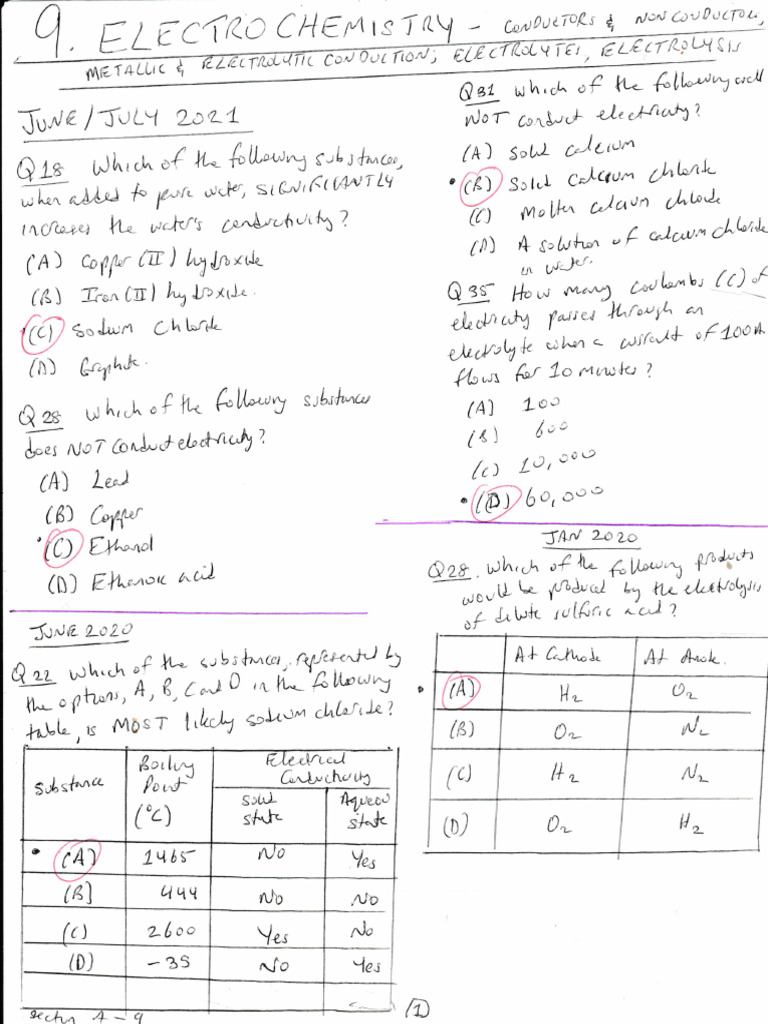 9. ELECTROCHEMISTRY - CONDUCTORS & NONCONDUCTORS,
METALLIC & ELECTROLYTIC CONDUCTION; ELECTROLYTES, ELECTROLYSIS
JUNE/JULY 2021
Q18 Which of the following substances,
when added to pure water, SIGNIFICANTLY
increases the water's conductivity?
(A) Copper (II) hydroxide
(B) Iron (II) hydroxide.
(C) Sodium Chloride
(D) Graphite.
Q28 Which of the following substances
does NOT conduct electricity?
(A) Lead
(B) Copper
(C) Ethanol
(D) Ethanoic acid
JUNE 2020
Q22 Which of the substances, represented by
the options, A, B, C and D in the following
table, is MOST likely sodium chloride?
Substance Boiling Point (°C) Electrical Conductivity
Solid state Aqueous state
(A) 1465 No Yes
(B) 444 No No
(C) 2600 Yes No
(D) -35 No Yes
Section A - 9
Q31 Which of the following will
NOT conduct electricity?
(A) Solid calcium
(B) Solid Calcium chloride
(C) Molten calcium chloride
(D) A solution of calcium chloride
in water.
Q35 How many coulombs (C) of
electricity passes through an
electrolyte when a current of 100A
flows for 10 minutes?
(A) 100
(B) 600
(C) 10,000
(D) 60,000
JAN 2020
Q28. Which of the following products
would be produced by the electrolysis
of dilute sulfuric acid?
At Cathode At Anode.
(A) H2 O2
(B) O2 N2
(C) H2 N2
(D) O2 H2
(1)